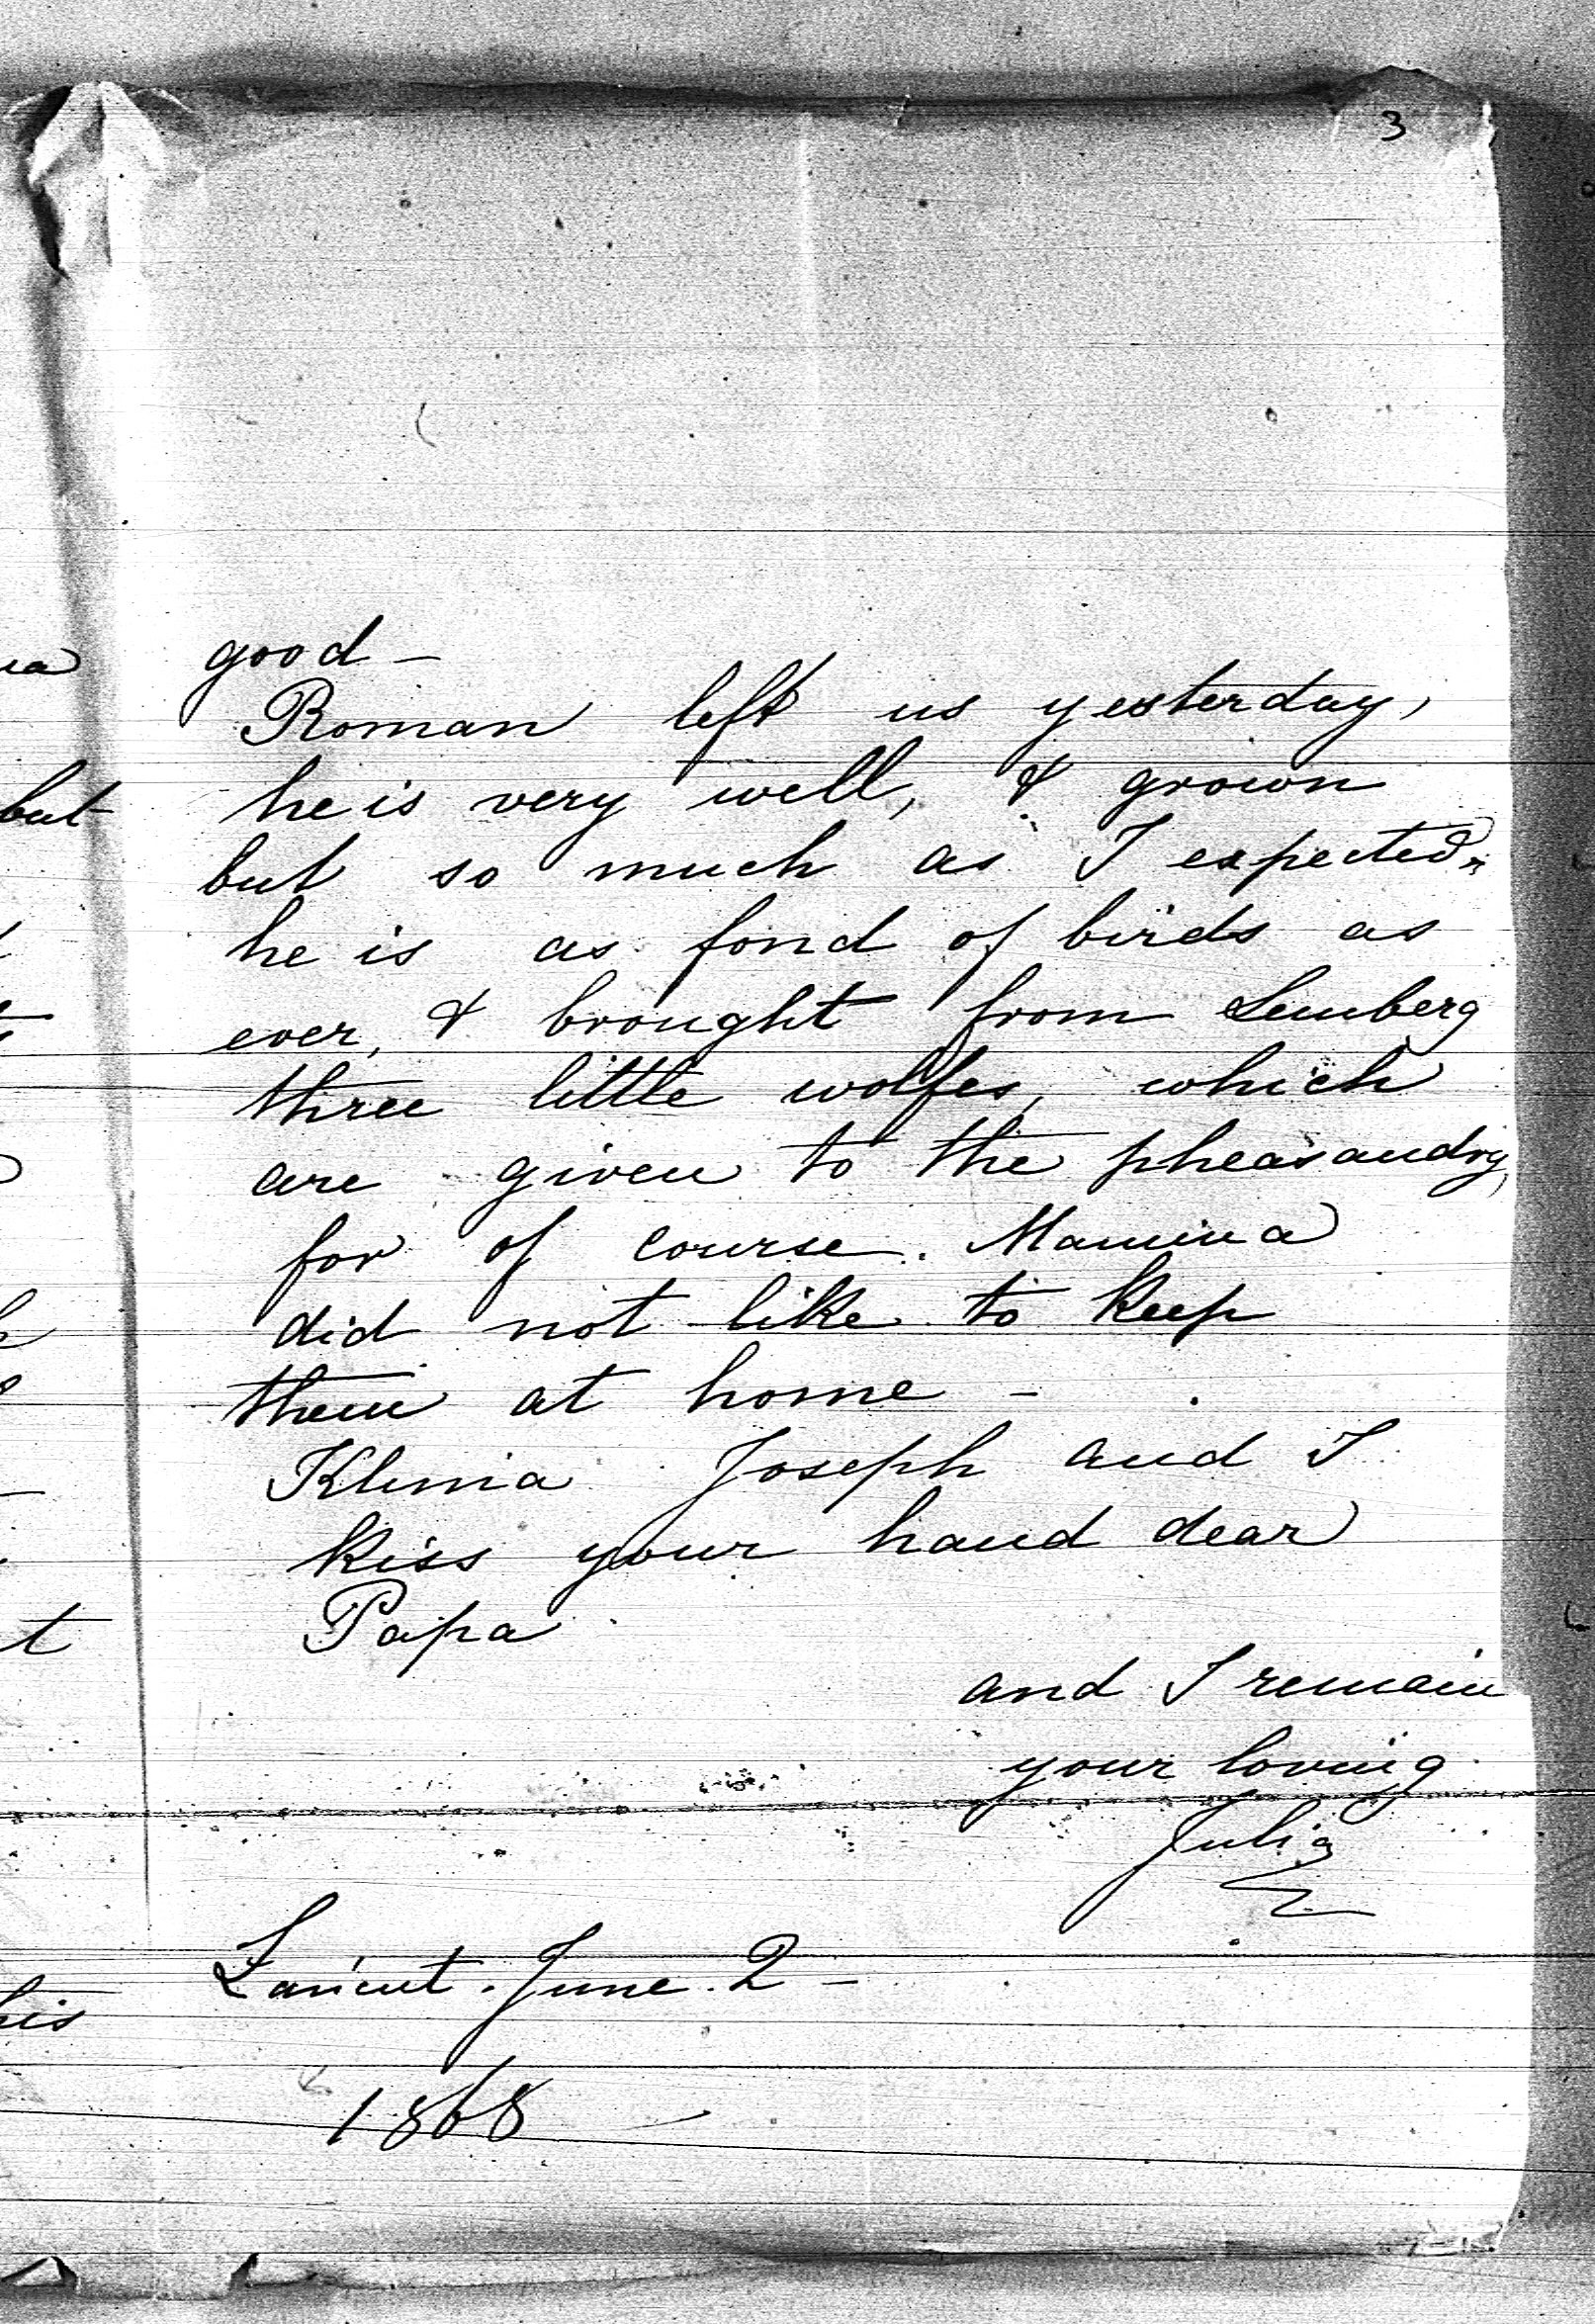 3
good —
Roman left us yesterday,
he is very well, & grown
but so much as I expected,
he is as fond of birds as
ever, & brought from Lemberg
three little wolfes, which
are given to the pheasandry,
for of course. Mamma
did not like to keep
them at home —
Klimia Joseph and I
kiss your hand dear
Papa
and I remain
your loving
Julia
Łańcut. June. 2 —
1868
but
his